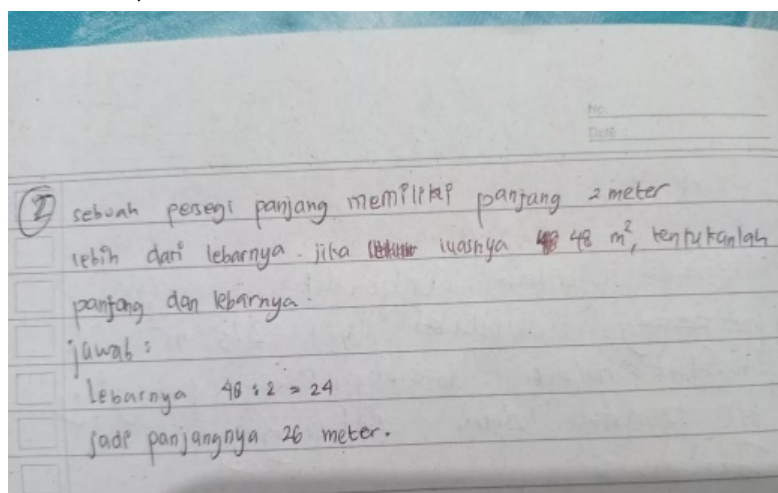 No.
Date
2 sebuah persegi panjang memiliki panjang 2 meter
lebih dari lebarnya. jika luasnya 48 m², tentukanlah
panjang dan lebarnya.
jawab :
Lebarnya 48 : 2 = 24
Jadi panjangnya 26 meter.